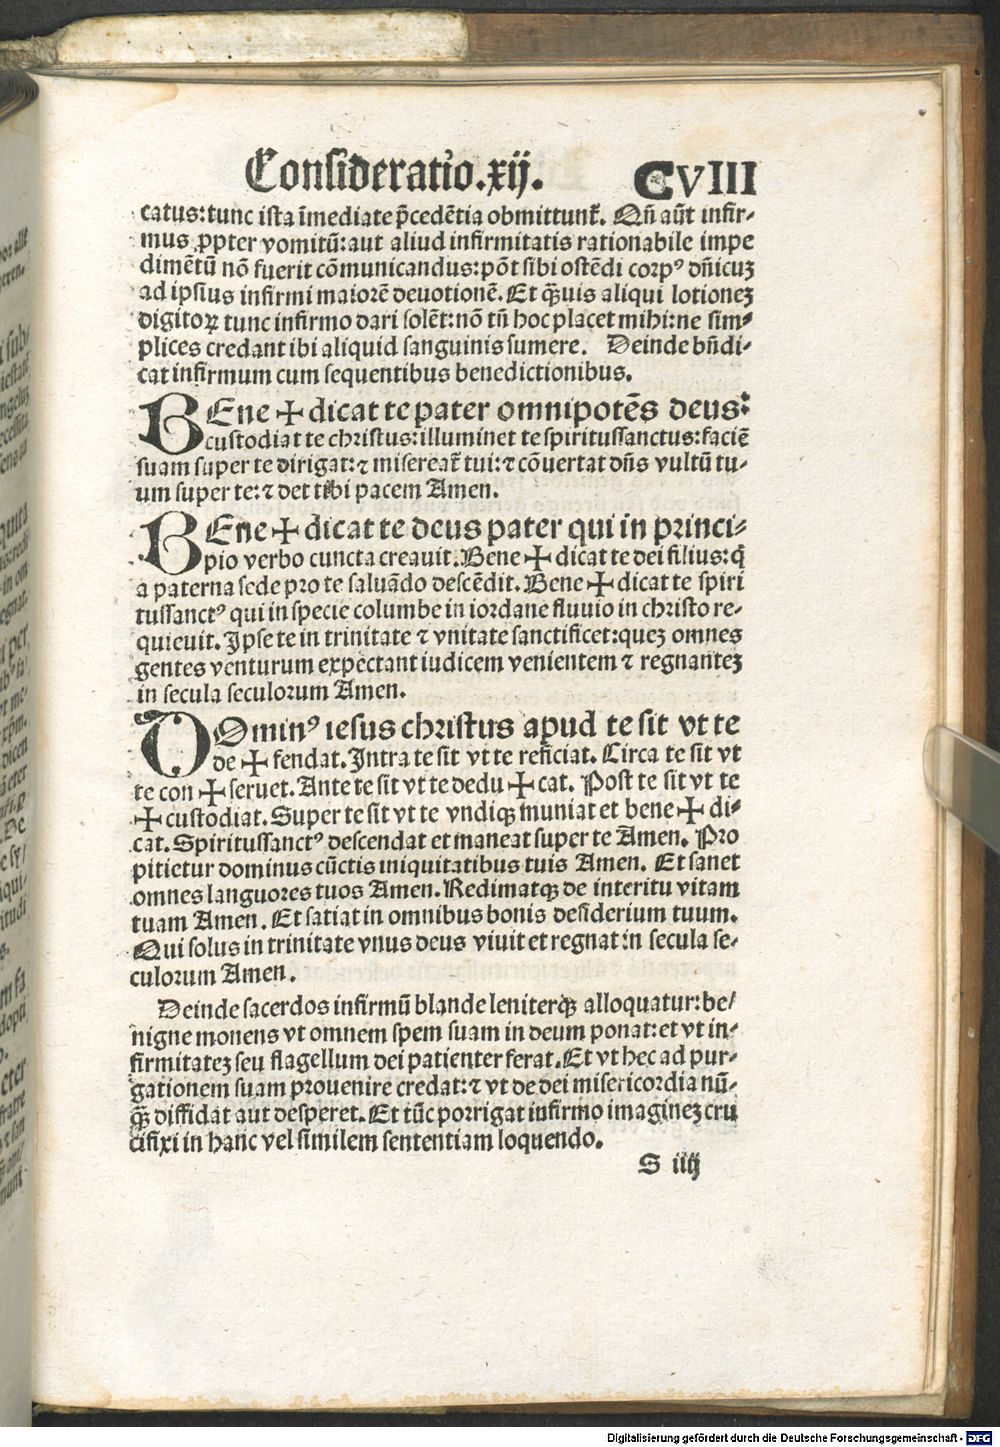 Consideratio.xij. CVIII
catus:tunc ista im̄ediate p̄cedētia obmittunt᷑. Qn̄ aūt infir⸗
mus ꝓpter vomitū:aut aliud infirmitatis rationabile impe
dimētū nō fuerit cōmunicandus:pōt sibi ostēdi corpꝰ dn̄icuꝫ
ad ipsius infirmi maiorē deuotionē. Et q̄uis aliqui lotioneꝫ
digitoꝝ tunc infirmo dari solēt:nō tn̄ hoc placet mihi:ne sim⸗
plices credant ibi aliquid sanguinis sumere. Deinde bn̄di⸗
cat infirmum cum sequentibus benedictionibus.
BEne ✠ dicat te pater omnipotēs deus:
custodiat te christus:illuminet te spiritussanctus:faciē
suam super te dirigat:⁊ misereat᷑ tui:⁊ cōuertat dn̄s vultū tu⸗
um super te:⁊ det tibi pacem Amen.
BEne ✠ dicat te deus pater qui in princi⸗
pio verbo cuncta creauit. Bene ✠ dicat te dei filius:q̄
a paterna sede pro te saluādo descēdit. Bene ✠ dicat te spiri
tussanctꝰ qui in specie columbe in iordane fluuio in christo re⸗
quieuit. Ipse te in trinitate ⁊ vnitate sanctificet:queꝫ omnes
gentes venturum expectant iudicem venientem ⁊ regnanteꝫ
in secula seculorum Amen.
DOminꝰ iesus christus apud te sit vt te
de ✠ fendat. Intra te sit vt te reficiat. Circa te sit vt
te con ✠ seruet. Ante te sit vt te dedu ✠ cat. Post te sit vt te
✠ custodiat. Super te sit vt te vndiqꝫ muniat et bene ✠ di⸗
cat. Spiritussanctꝰ descendat et maneat super te Amen. Pro
pitietur dominus cūctis iniquitatibus tuis Amen. Et sanet
omnes languores tuos Amen. Redimatqꝫ de interitu vitam
tuam Amen. Et satiat in omnibus bonis desiderium tuum.
Qui solus in trinitate vnus deus viuit et regnat in secula se⸗
culorum Amen.
Deinde sacerdos infirmū blande leniterqꝫ alloquatur:be⸗
nigne monens vt omnem spem suam in deum ponat:et vt in⸗
firmitateꝫ seu flagellum dei patienter ferat. Et vt hec ad pur⸗
gationem suam prouenire credat:⁊ vt de dei misericordia nū⸗
q̄ꝫ diffidat aut desperet. Et tūc porrigat infirmo imagineꝫ cru
cifixi in hanc vel similem sententiam loquendo.
S iiij
Digitalisierung gefördert durch die Deutsche Forschungsgemeinschaft - DFG